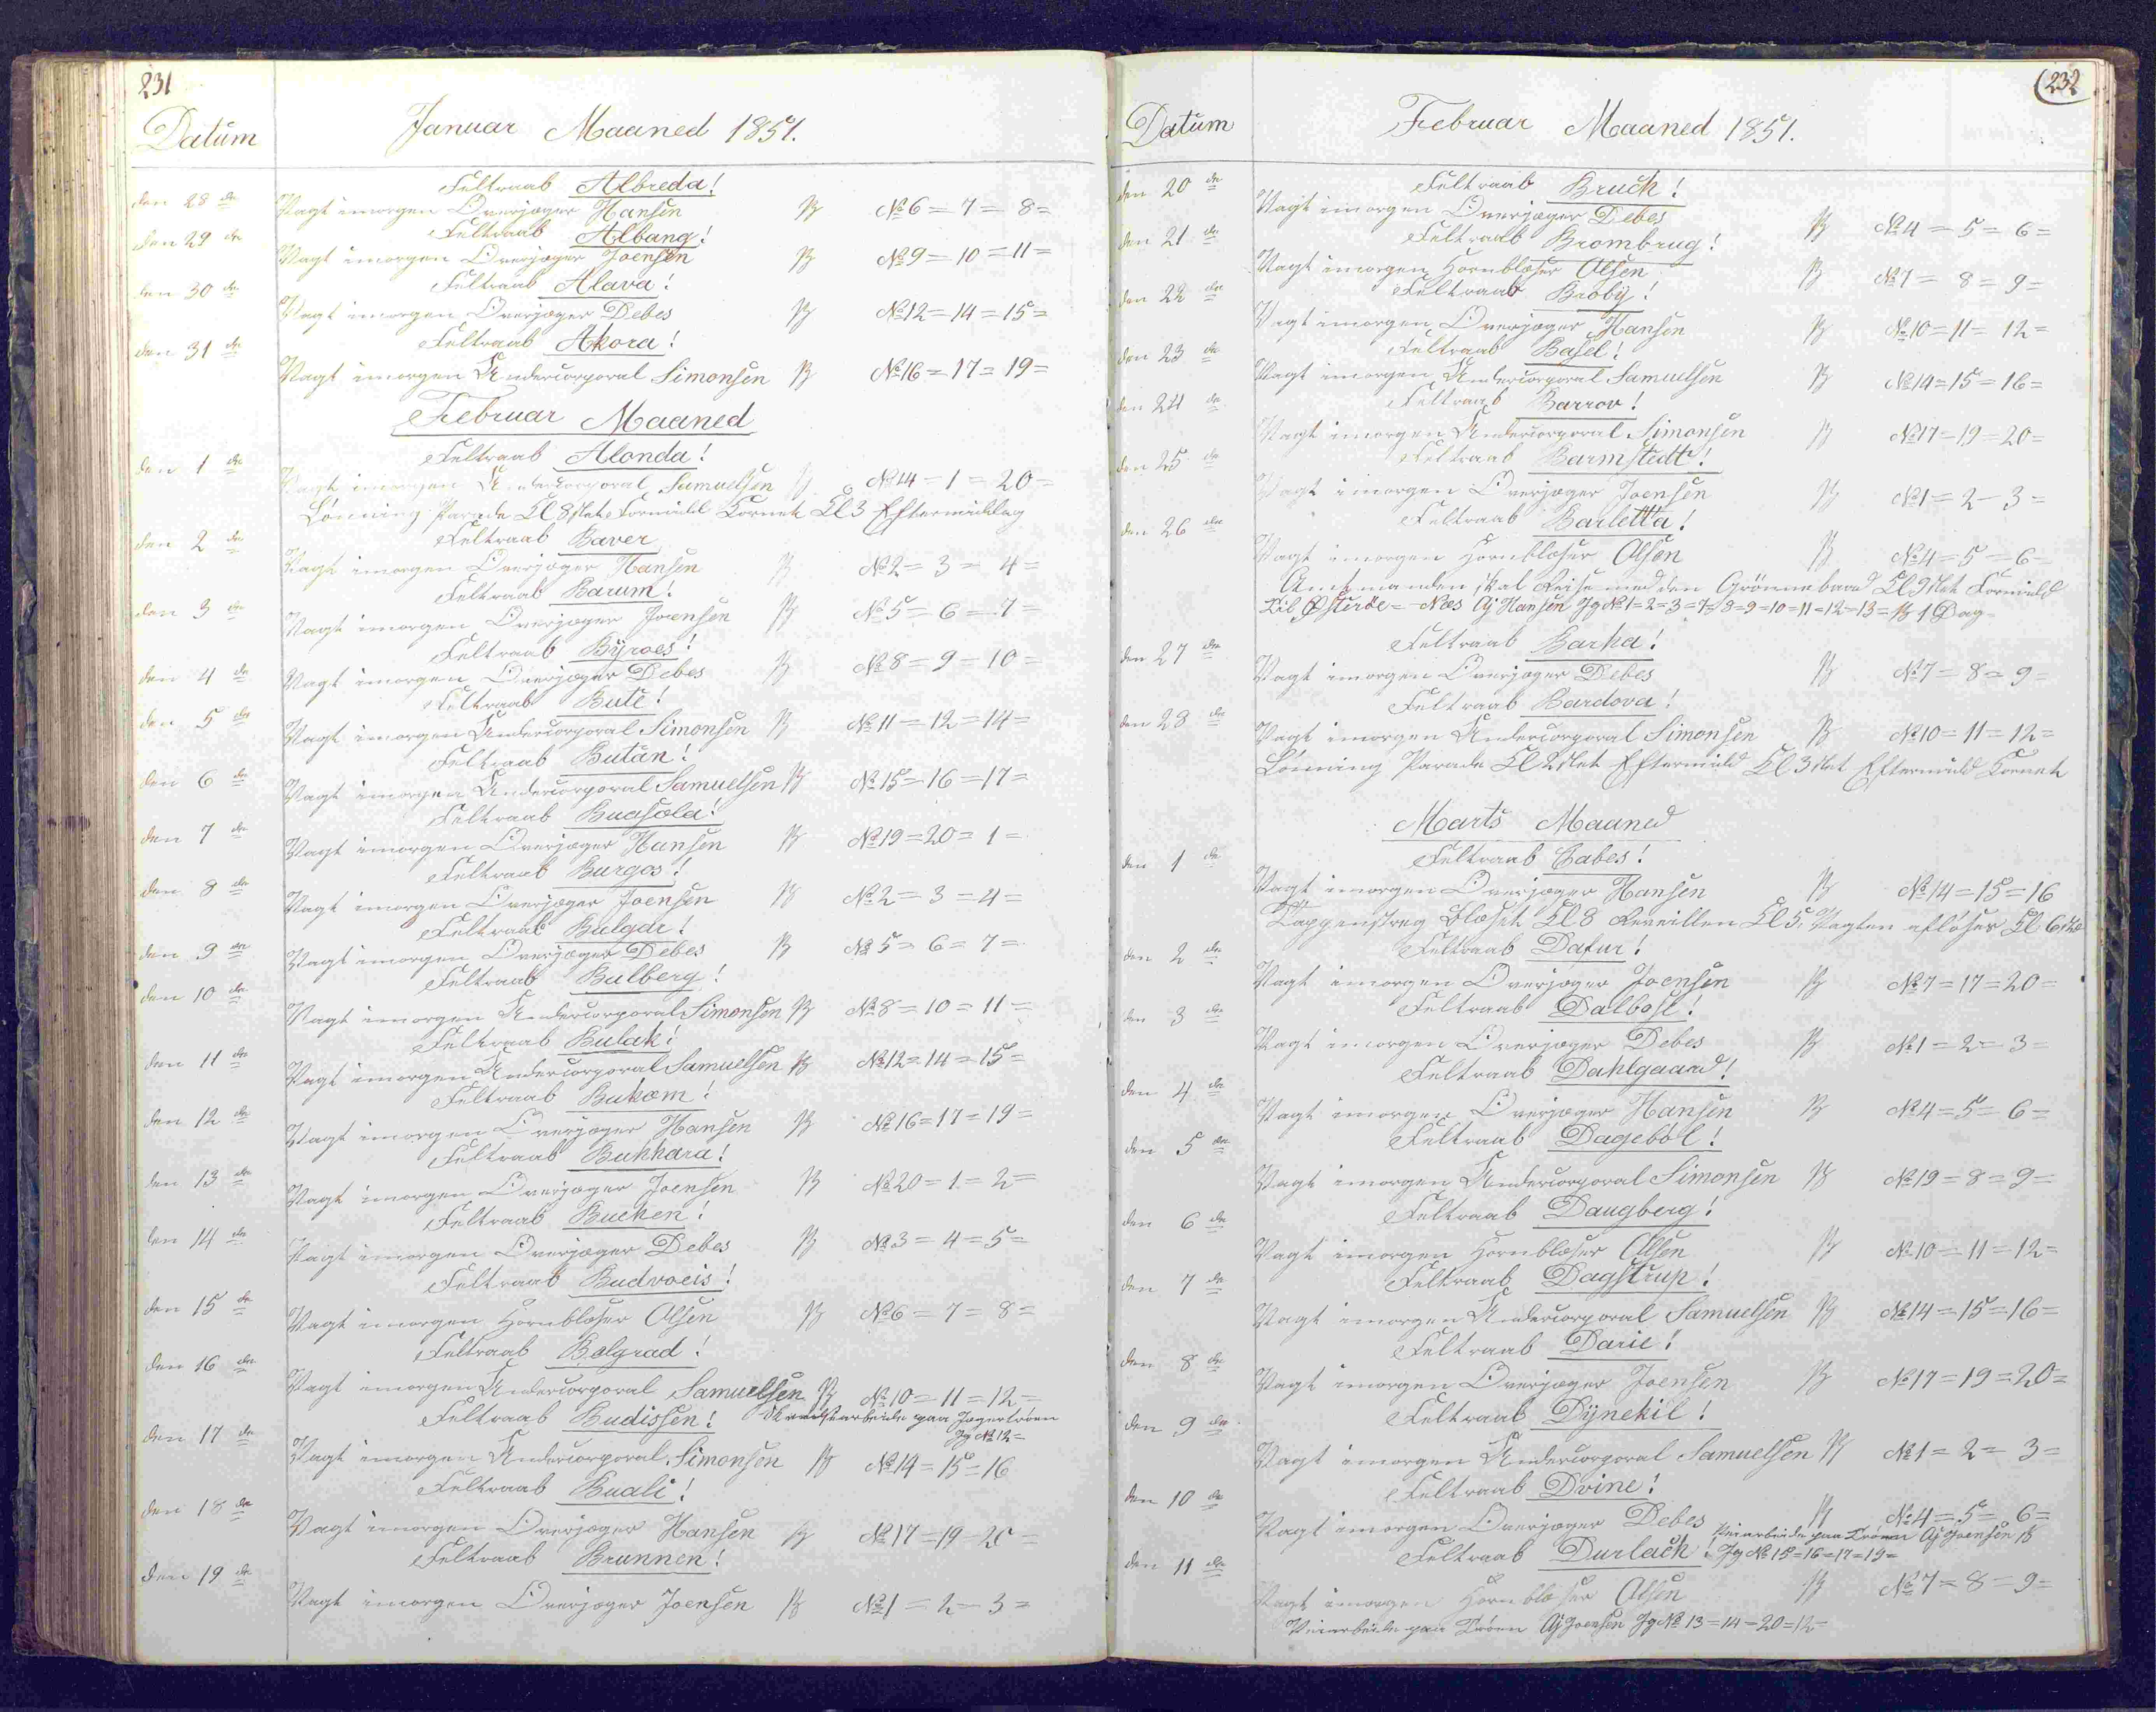 231
Datum
Januar Maaned 1851.
Feltraab Albreda!
den 28 de
Vagt imorgen Overjæger Hansen № 6 = 7 = 8 =
Feltraab Albang!
den 29 de
Vagt imorgen Overjæger Joensen № 9 = 10 = 11 =
Feltraab Alava!
den 30 de
Vagt imorgen Overjæger Debes № 12 = 14 = 15 =
Feltraab Akora!
den 31 de
Vagt imorgen Undercorporal Simonsen № 16 = 17 = 19 =
Februar Maaned
Feltraab Alonda!
den 1 de
Vagt imorgen Undercorporal Samuelsen № 14 = 1 = 20 =
Lönning Parade Kl 8 slet Formidd Kornet Kl 3 Eftermiddag
Feltraab Baver
den 2 den
Vagt imorgen Overjæger Hansen № 2 = 3 = 4 =
Feltraab Barum!
den 3 de
Vagt imorgen Overjæger Joensen № 5 = 6 = 7 =
Feltraab Byroes!
den 4 de
Vagt imorgen Overjæger Debes № 8 = 9 = 10 =
Feltraab Bute!
den 5 de
Vagt imorgen Undercorporal Simonsen № 11 = 12 = 14 =
Feltraab Butan!
den 6 de
Vagt imorgen Undercorporal Samuelsen № 15 = 16 = 17 =
Feltraab Buasola!
den 7 de
Vagt imorgen Overjæger Hansen № 19 = 20 = 1 =
Feltraab Burgos!
den 8 de
Vagt imorgen Overjæger Joensen № 2 = 3 = 4 =
Feltraab Bulgar!
den 9 de
Vagt imorgen Overjæger Debes № 5 = 6 = 7 =
Feltraab Bulberg!
den 10 de
Vagt imorgen Undercorporal Simonsen № 8 = 10 = 11 =
Feltraab Bulak!
den 11 de
Vagt imorgen Undercorporal Samuelsen № 12 = 14 = 15 =
Feltraab Bukæm!
den 12 de
Vagt imorgen Overjæger Hansen № 16 = 17 = 19 =
Feltraab Bukhara!
den 13 de
Vagt imorgen Overjæger Joensen № 20 = 1 = 2 =
Feltraab Bucken!
den 14 de
Vagt imorgen Overjæger Debes № 3 = 4 = 5 =
Feltraab Budvoeis!
den 15 de
Vagt imorgen Hornblæser Olsen № 6 = 7 = 8 =
Feltraab Belgrad!
den 16 de
Vagt imorgen Undercorporal Samuelsen № 10 = 11 = 12 =
Feltraab Budissen! paa Jægertröen
Jg № 12 =
den 17 de
Vagt imorgen Undercorporal Simonsen № 14 = 15 = 16
Feltraab Buali!
den 18 de
Vagt imorgen Overjæger Hansen № 17 = 19 = 20 =
Feltraab Brunnen!
den 19 de
Vagt imorgen Overjæger Joensen № 1 = 2 = 3 =
232
Datum
Februar Maaned 1851.
Feltraab Bruch!
den 20 de
Vagt imorgen Overjæger Debes № 4 = 5 = 6 =
Feltraab Brombrug!
den 21 de
Vagt imorgen Hornblæser Olsen № 7 = 8 = 9 =
Feltraab Broby!
den 22 de
Vagt imorgen Overjæger Hansen № 10 = 11 = 12 =
Feltraab Basel!
den 23 de
Vagt imorgen Undercorporal Samuelsen № 14 = 15 = 16 =
Feltraab Barrov!
den 24 de
Vagt imorgen Undercorporal Simonsen № 17 = 19 = 20 =
Feltraab Barmstedt!
den 25 de
Vagt imorgen Overjæger Joensen № 1 = 2 = 3 =
Feltraab Barletta!
den 26 de
Vagt imorgen Hornblæser Olsen № 4 = 5 = 6 =
Amtmanden skal Reise med den Grönnebaad Kl 9 slet Formidd
til Østeröe = Næs Oj Hansen Jg № 1 = 2 = 3 = 7 = 8 = 9 = 10 = 11 = 12 = 13 = 1 Dag =
Feltraab Barka!
den 27 de
Vagt imorgen Overjæger Debes № 7 = 8 = 9 =
Feltraab Bardova!
den 28 de
Vagt imorgen Undercorporal Simonsen № 10 = 11 = 12 =
Lönning Parade Kl 2 slet Eftermidd Kl 3 slet Eftermidd Kornet
Marts Maaned
Feltraab Cabes!
den 1 de
Vagt imorgen Overjæger Hansen № 14 = 15 = 16
Tappenstreg blæset Kl 8 Reveillen Kl 5, Vagten aflöses Kl 6
Feltraab Dafur!
den 2 de
Vagt imorgen Overjæger Joensen № 7 = 17 = 20 =
Feltraab Dalbosl!
den 3 de
Vagt imorgen Overjæger Debes № 1 = 2 = 3 =
Feltraab Dahlgaard!
den 4 de
Vagt imorgen Overjæger Hansen № 4 = 5 = 6 =
Feltraab Dageböl!
den 5 de
Vagt imorgen Undercorporal Simonsen № 19 = 8 = 9 =
Feltraab Daugberg!
den 6 de
Vagt imorgen Hornblæser Olsen № 10 = 11 = 12 =
Feltraab Dagstrup!
den 7 de
Vagt imorgen Undercorporal Samuelsen № 14 = 15 = 16 =
Feltraab Darie!
den 8 de
Vagt imorgen Overjæger Joensen № 17 = 19 = 20 =
Feltraab Dynekil!
den 9 de
Vagt imorgen Undercorporal Samuelsen № 1 = 2 = 3 =
Feltraab Dvine!
den 10 de
Vagt imorgen Overjæger Debes № 4 = 5 = 6 =
Veiarbeide paa Tröen Oj Joensen
Feltraab Durlach! Jg № 15 = 16 = 17 = 19 =
den 11 de
Vagt imorgen Hornblæser Olsen № 7 = 8 = 9 =
Veiarbeide paa Tröen Oj Joensen Jg № 13 = 14 = 20 = 12 =